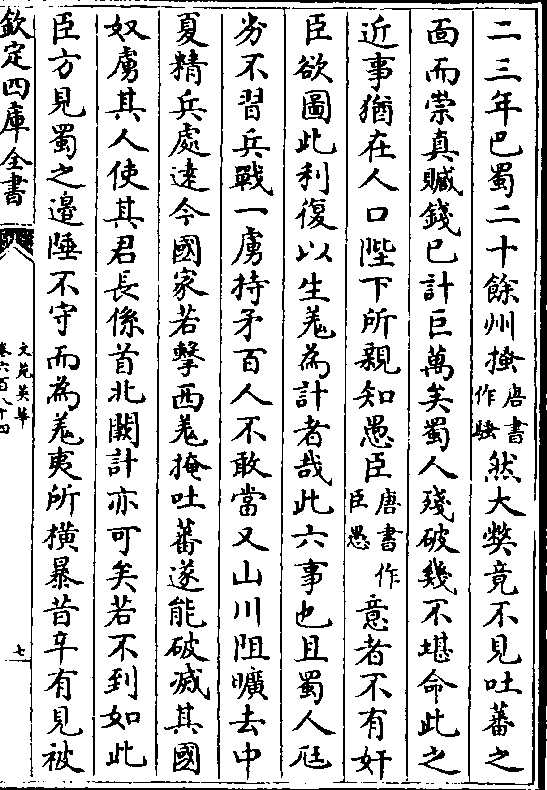 二三年巴蜀二十餘州搔唐書作騷然大獘竟不見吐蕃之
面而崇真贓錢已計巨萬矣蜀人殘破幾不堪命此之
近事猶在人口陛下所親知愚臣唐書作臣愚意者不有奸
臣欲圖此利復以生羗為計者哉此六事也且蜀人尩
劣不習兵戰一虜持矛百人不敢當又山川阻曠去中
夏精兵處逺今國家若擊西羗掩吐蕃遂能破滅其國
奴虜其人使其君長係首北闕計亦可矣若不到如此
臣方見蜀之邉陲不守而為羗夷所横暴昔辛有見被
欽定四庫全書
文苑英華
卷六百八十四
七